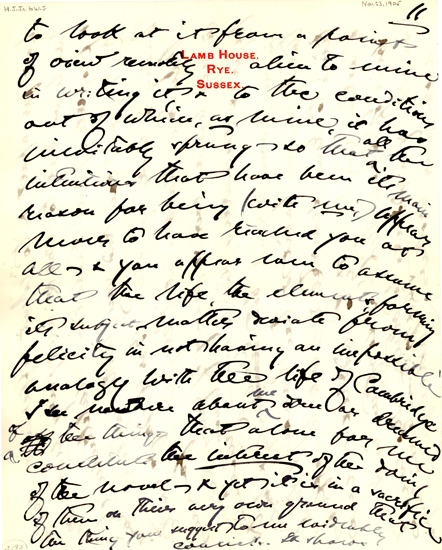 H.J. to W.J.
Nov. 23, 1905
11
to look at it from a point
of view remotely alien to mine
LAMB HOUSE.
RYE.
SUSSEX.
in writing it, & to the conditions
out of which, as mine, it has
inevitably sprung—so that all the
intentions that have been its main
reason for being (with me) appear
never to have reached you at
all—& you appear even to assume
that the life, the elements, forming
its subject-matter deviate from
felicity in not having an impossible
analogy with the life of Cambridge.
I see nowhere about me done or dreamed
of the things that alone for me
constitute the interest of the doing
of the novel—& yet it is in a sacrifice
of them on their very own ground that
the thing you suggest to me evidently
consists. It shows